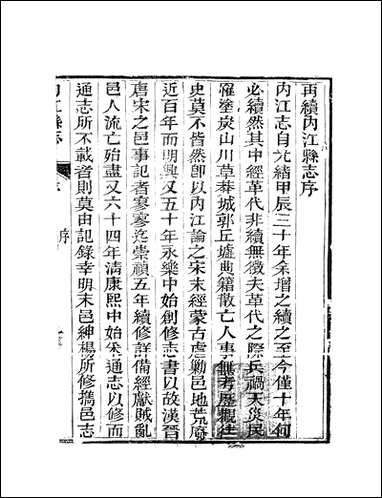 再續內江縣志序
內江志自光緒甲辰三十年余增之續之至今僅十年何
必續然其中經革代非續無徵夫革代之際兵禍天災民
罹塗炭山川草莽城郭丘墟典籍散亡人事無考歷觀往
史莫不皆然卽以內江論之宋末經蒙古虐勦邑地荒廢
近百年而明興又五十年永樂中始創修志書以故漢晉
唐宋之邑事記者寥寥迄崇禎五年續修詳備經獻賊亂
邑人流亡殆盡又六十四年清康熙中始釆通志以修而
通志所不載者則莫由記錄幸明末邑紳楊所修攜邑志
內江縣志
序